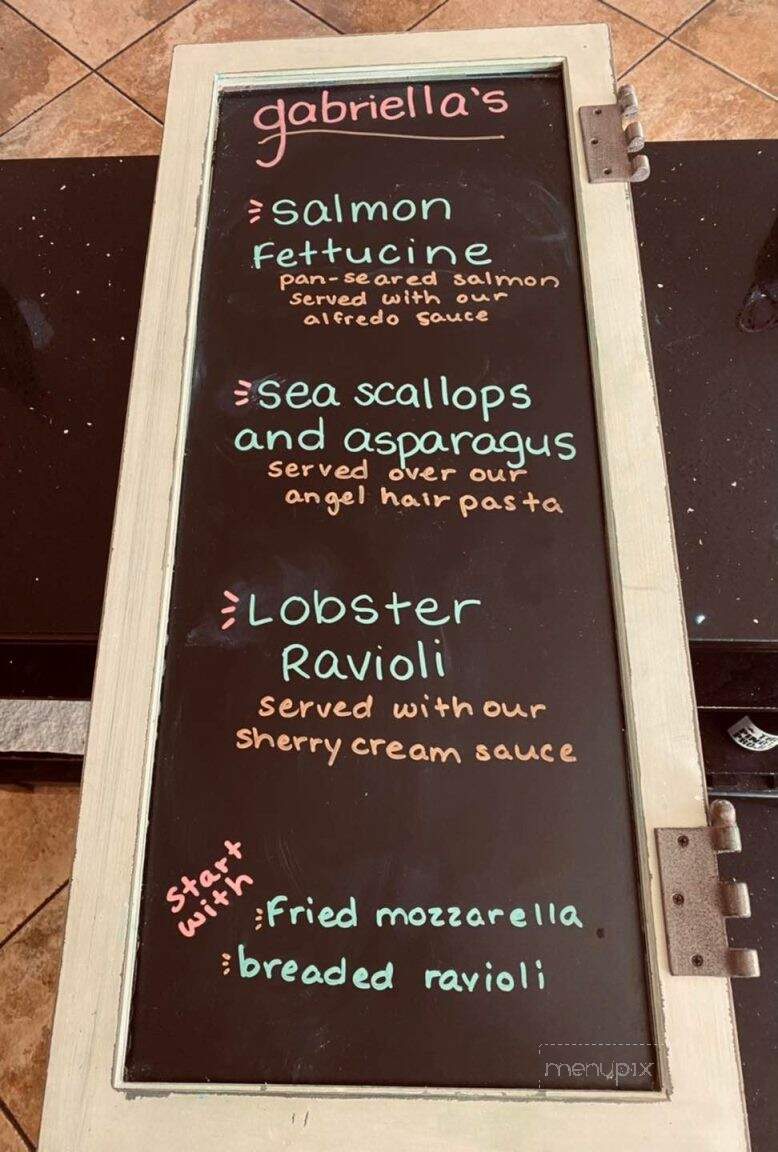 gabriella's
salmon
Fettucine
pan-seared salmon
served with our
alfredo sauce
sea scallops
and asparagus
served over our
angel hair pasta
Lobster
Ravioli
served with our
sherry cream sauce
start
with
Fried mozzarella
breaded ravioli
menupix